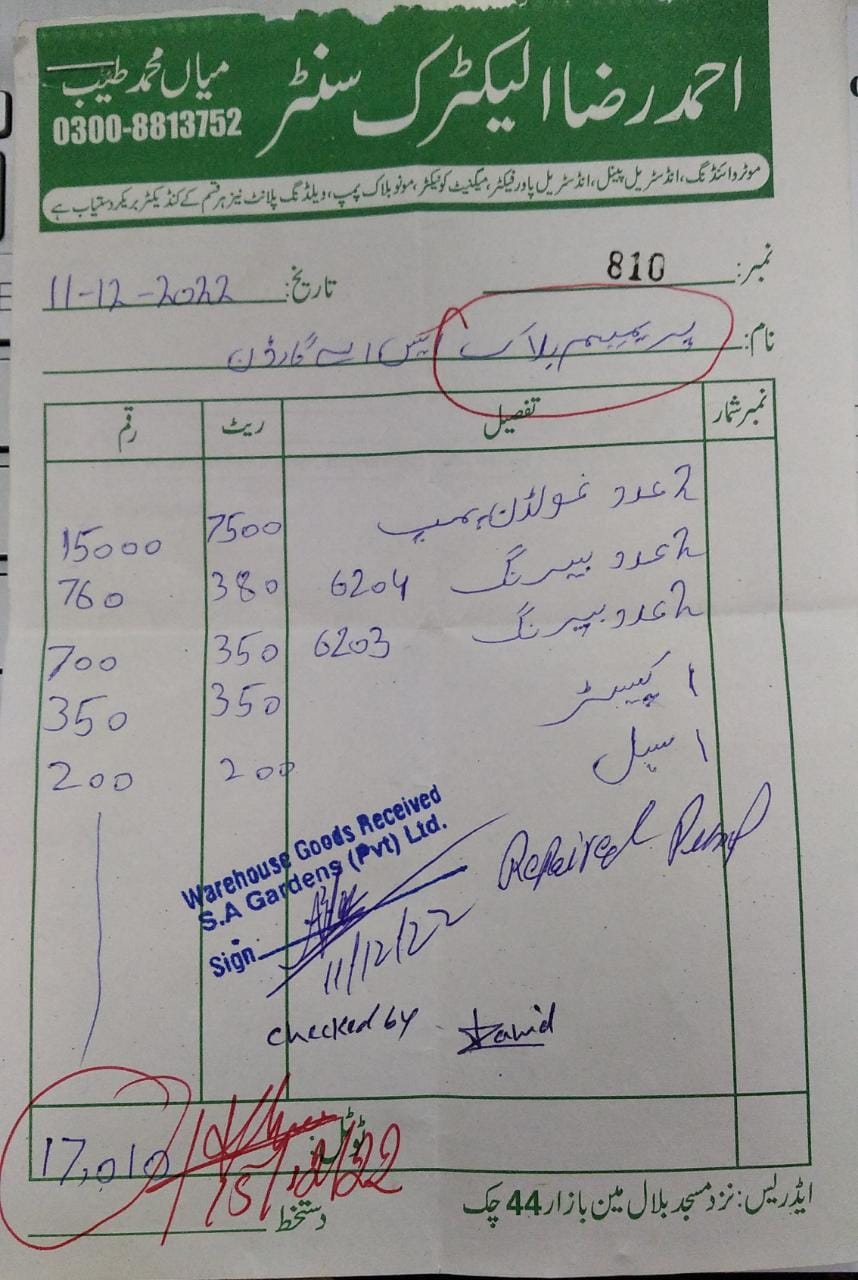 احمد رضا الیکٹرک سنٹر
میاں محمد طیب
0300-8813752
موٹر وائنڈنگ، انڈسٹریل پینل، انڈسٹریل پاور فیکٹر، میگنیٹ کونیکٹر، مونو بلاک پمپ، ویلڈنگ پلانٹ نیز ہر قسم کے کنڈیکٹر بریکر دستیاب ہے
نمبر: 810 تاریخ: 11-12-2022
نام: پریمیم بلاک ایس اے گارڈن
نمبر شمار تفصیل ریٹ رقم
2 عدد غولڈن پمپ 7500 15000
2 عدد بیرنگ 6204 380 760
2 عدد بیرنگ 6203 350 700
1 کپیسٹر 350 350
1 سیل 200 200
Warehouse Goods Received
S.A Gardens (Pvt) Ltd.
Sign
11/12/22
Repaired Pump
checked by
ٹوٹل 17,010
15/12/22
دستخط
ایڈریس: نزد مسجد بلال مین بازار 44 چک